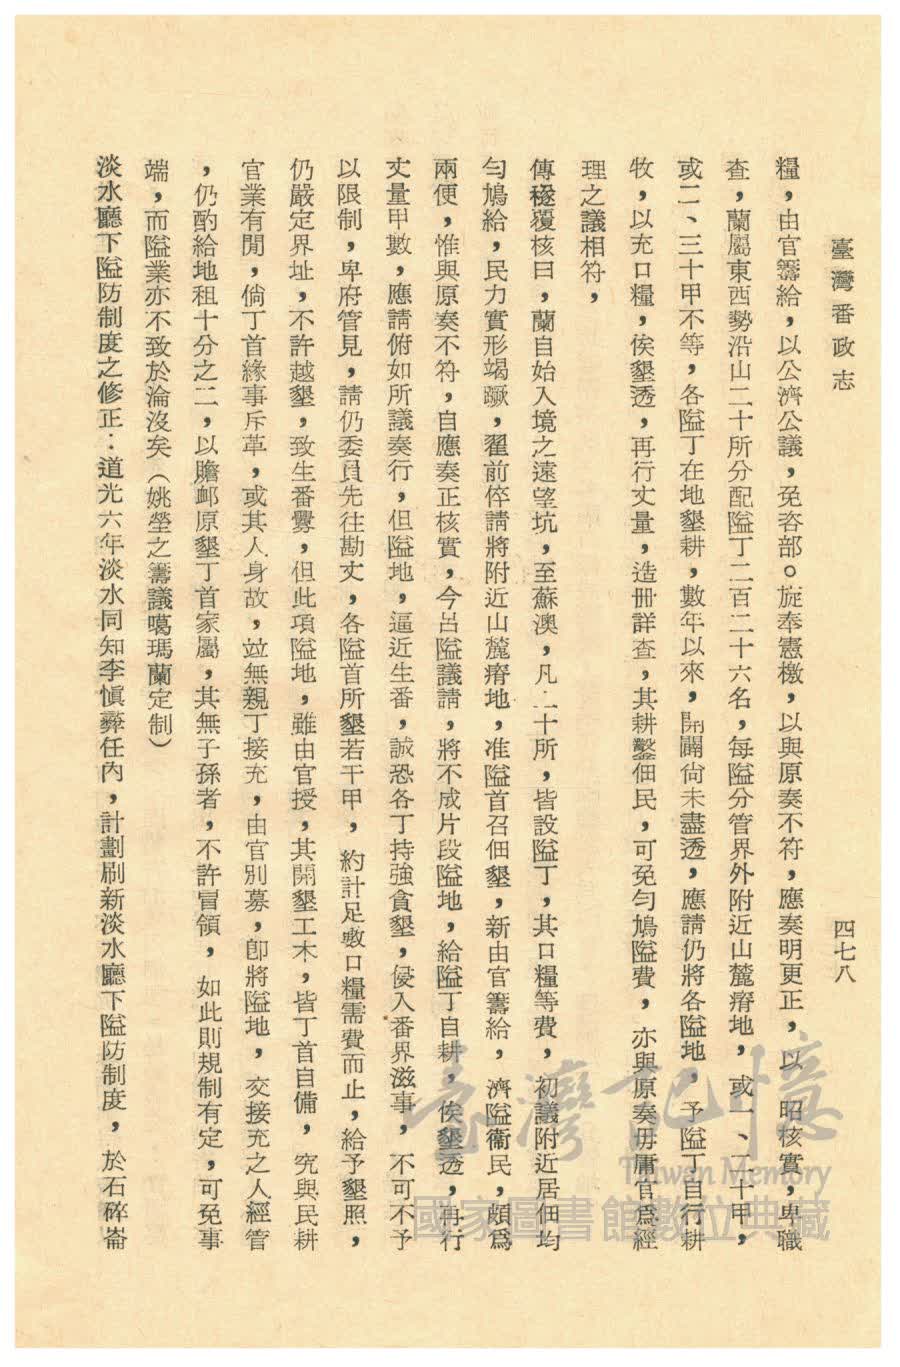 臺灣番政志
四七八
糧，由官籌給，以公濟公議，免咨部。旋奉憲檄，以與原奏不符，應奏明更正，以　昭核實，卑職
查，蘭屬東西勢沿山二十所分配隘丁二百二十六名，每隘分管界外附近山麓瘠地，或一、二十甲，
或二、三十甲不等，各隘丁在地墾耕，數年以來，開闢尙未盡透，應請仍將各隘地，予隘丁自行耕
牧，以充口糧，俟墾透，再行丈量，造册詳查，其耕鑿佃民，可免勻鳩隘費，亦與原奏毋庸官爲經
理之議相符，
傳穟覆核曰，蘭自始入境之遠望坑，至蘇澳，凡二十所，皆設隘丁，其口糧等費，初議附近居佃均
勻鳩給，民力實形竭蹶，翟前倅請將附近山麓瘠地，准隘首召佃墾，新由官籌給，濟隘衞民，頗爲
兩便，惟與原奏不符，自應奏正核實，今呂隘議請，將不成片段隘地，給隘丁自耕，俟墾透，再行
丈量甲數，應請俯如所議奏行，但隘地，逼近生番，誠恐各丁持強貪墾，侵入番界滋事，不可不予
以限制，卑府管見，請仍委員先往勘丈，各隘首所墾若干甲，約計足敷口糧需費而止，給予墾照，
仍嚴定界址，不許越墾，致生番釁，但此項隘地，雖由官授，其開墾工木，皆丁首自備，究與民耕
官業有閒，倘丁首緣事斥革，或其人身故，竝無親丁接充，由官別募，卽將隘地，交接充之人經管
，仍酌給地租十分之二，以贍邮原墾丁首家屬，其無子孫者，不許冒領，如此則規制有定，可免事
端，而隘業亦不致於淪沒矣（姚瑩之籌議噶瑪蘭定制）
淡水廳下隘防制度之修正：道光六年淡水同知李愼彝任內，計劃刷新淡水廳下隘防制度，於石碎崙
臺灣記憶
Taiwan Memory
國家圖書館數位典藏